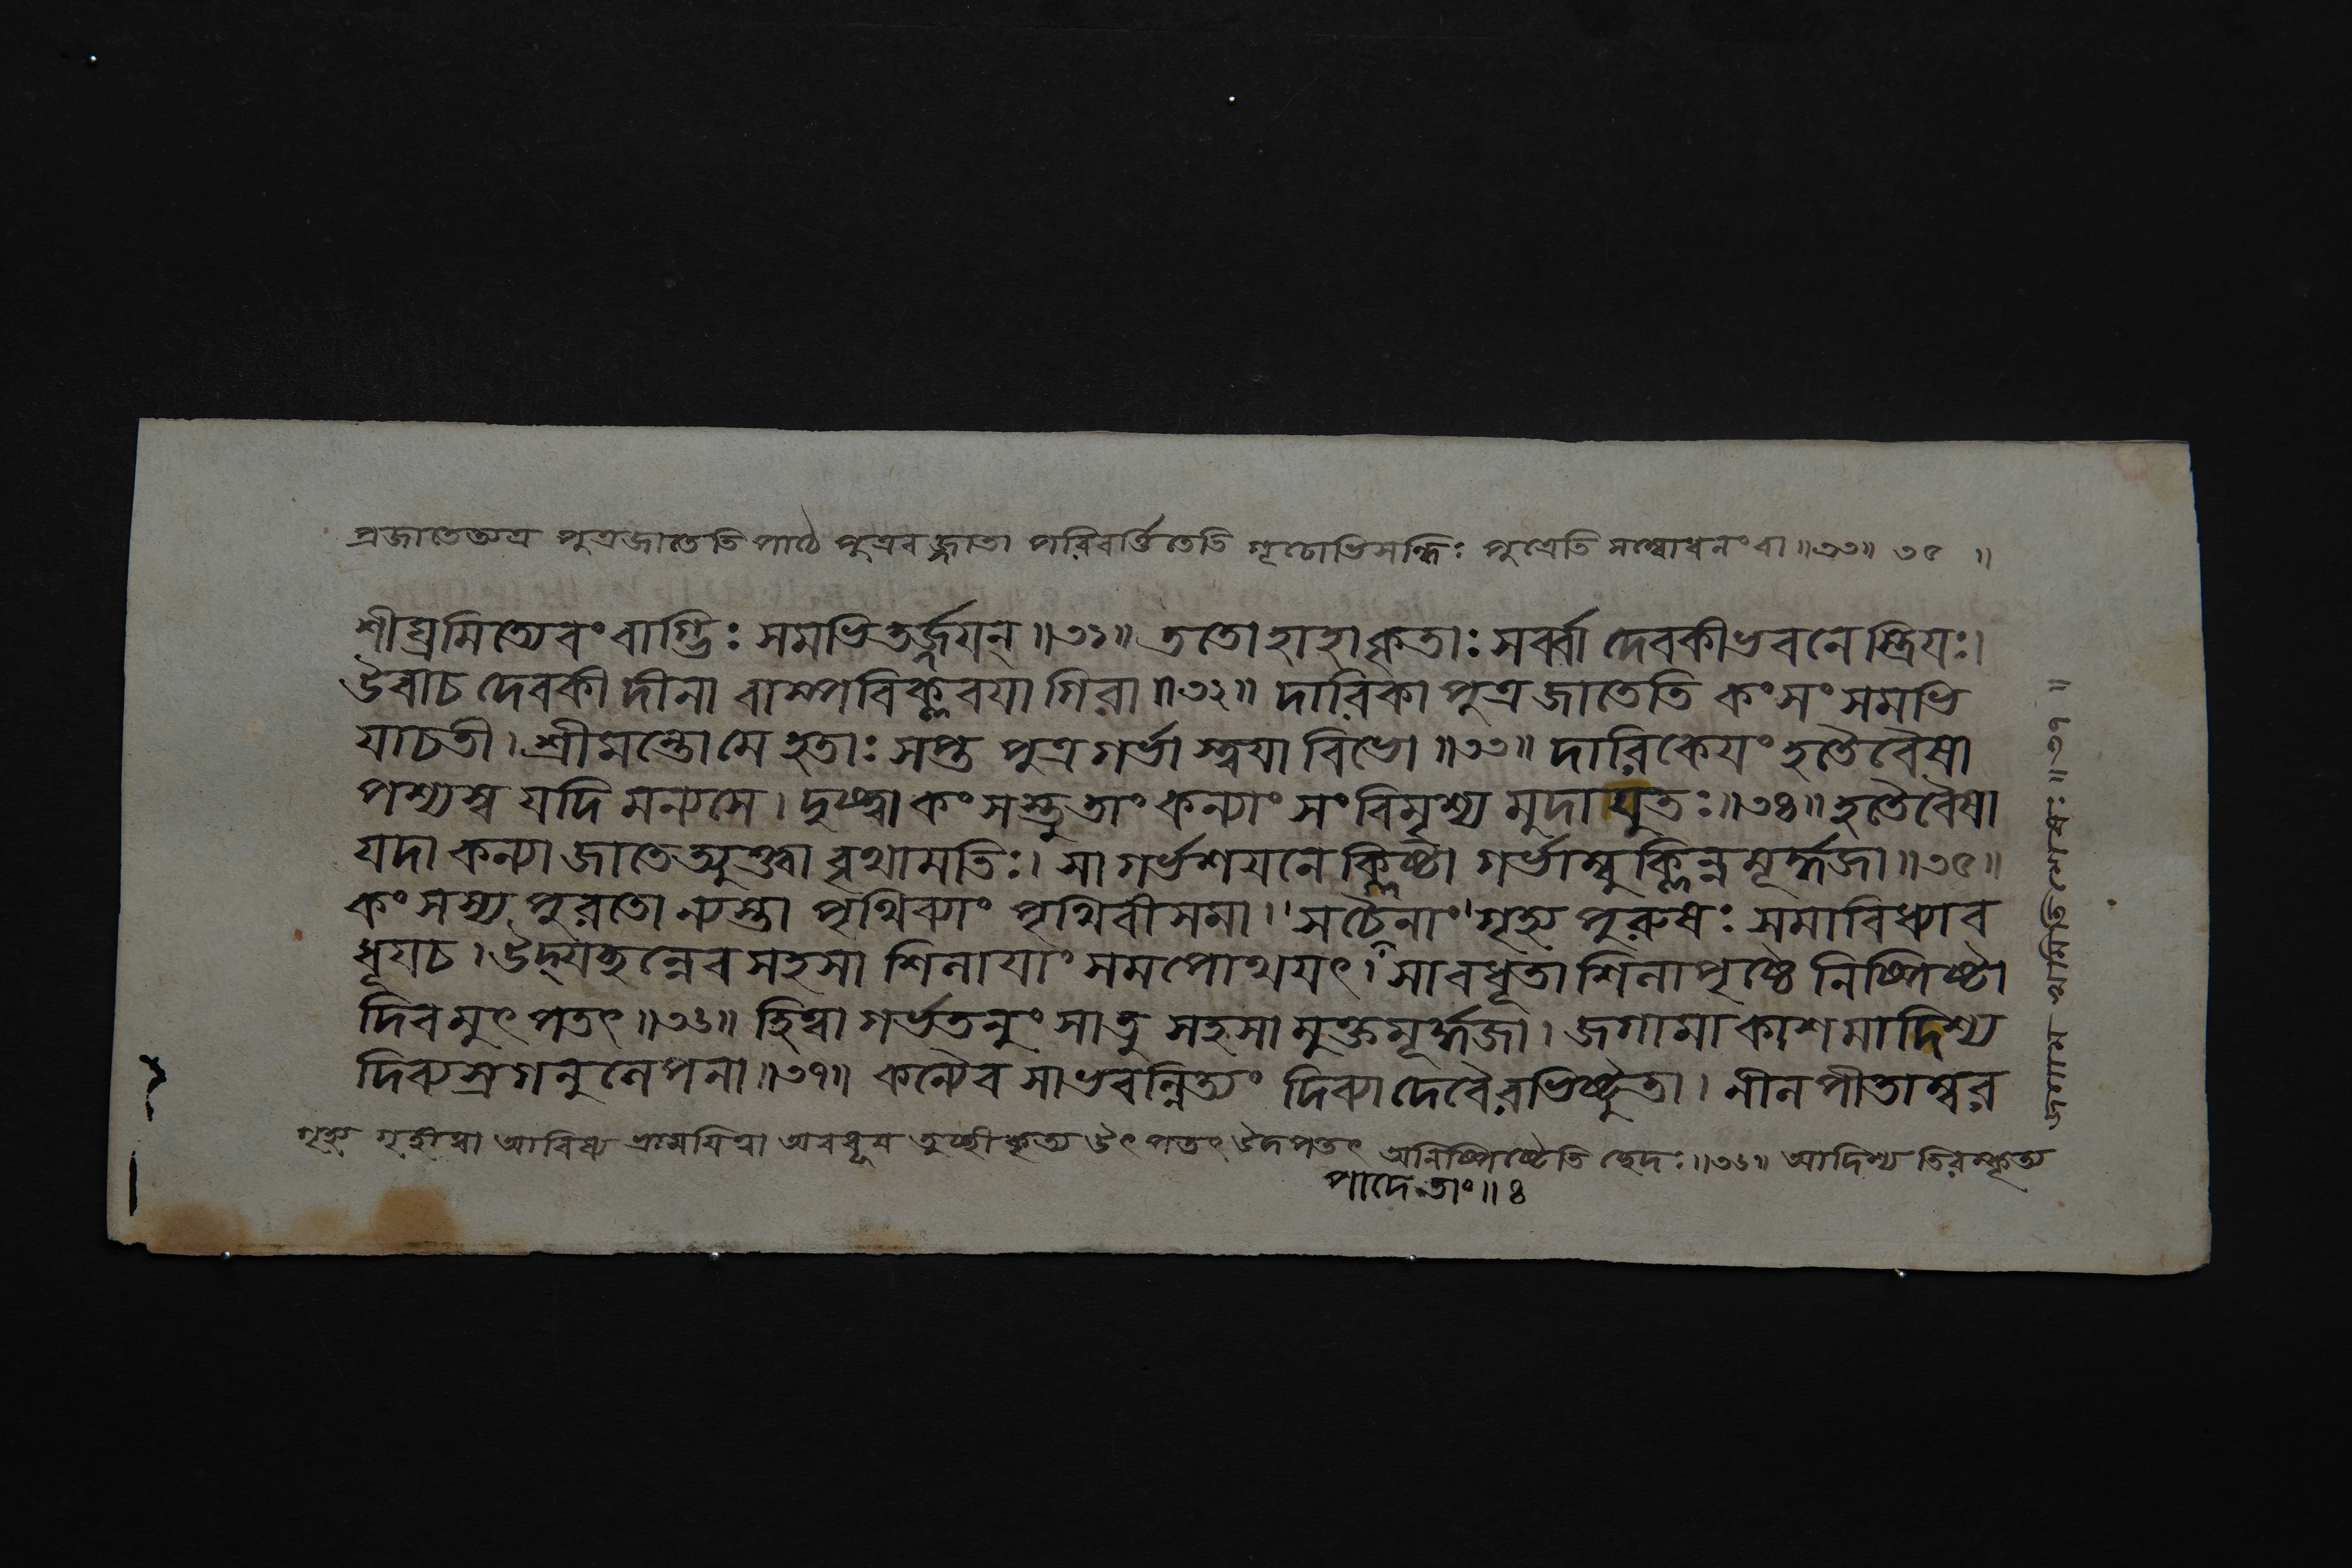 প্রজাতেত্যত্র পুত্রজাতেতি পাঠে পুত্রবজ্জাতা পরিবর্ত্তিতেতি গূঢোভিসন্ধিঃ পুত্রেতি সম্বোধনংবা॥৩৩॥ ৩৫ ॥
শীঘ্রমিত্যেবং বাগ্ভিঃ সমভিতর্জ্জয়ন্॥৩১॥ ততো হাহাকৃতাঃ সর্ব্বা দেবকীভবনে স্ত্রিয়ঃ।
উবাচ দেবকী দীনা বাষ্পবিক্লবয়া গিরা॥৩২॥ দারিকা পুত্র জাতেতি কংসং সমভি
যাচতী। শ্রীমন্তো মে হতাঃ সপ্ত পুত্রগর্ভাস্ত্বয়া বিভো॥৩৩॥ দারিকেয়ং হতৈবৈষা
পশ্যস্ব যদি মন্যসে। দৃষ্ট্বা কংসস্তু তাং কন্যাং সংবিমৃশ্য মুদা যুতঃ॥৩৪॥ হতৈবৈষা
যদা কন্যা জাতেত্যুক্ত্বা বৃথামতিঃ। সা গর্ভশয়নে ক্লিষ্টা গর্ভাম্বুক্লিন্নমূর্দ্ধজা॥৩৫॥
কংসস্য পুরতো ন্যস্তা পৃথিব্যাং পৃথিবীসমা। সচৈনাং গৃহ্য পুরুষঃ সমাবিধ্যাব
ধূয়চ। উদ্যচ্ছন্নেব সহসা শিলায়াং সমপোথয়ৎ। সাবধূতা শিলাপৃষ্ঠে নিষ্পিষ্টা
দিবমুৎপতৎ॥৩৬॥ হিত্বা গর্ভতনুং সাতু সহসা মুক্তমূর্দ্ধজা। জগামাকাশমাদিশ্য
দিব্যস্রগনুলেপনা॥৩৭॥ কন্যৈব সাভবন্নিত্যং দিব্যা দেবৈরভিষ্টুতা। নীলপীতাম্বর
গৃহ্য গৃহীত্বা আবিধ্য ভ্রাময়িত্বা অবধূয় তুচ্ছীকৃত্য উৎপতৎ উদপতৎ অনিষ্পিষ্টেতি ছেদঃ॥৩৬॥ আদিশ্য তিরস্কৃত্য
পাদে তাং॥ ৪